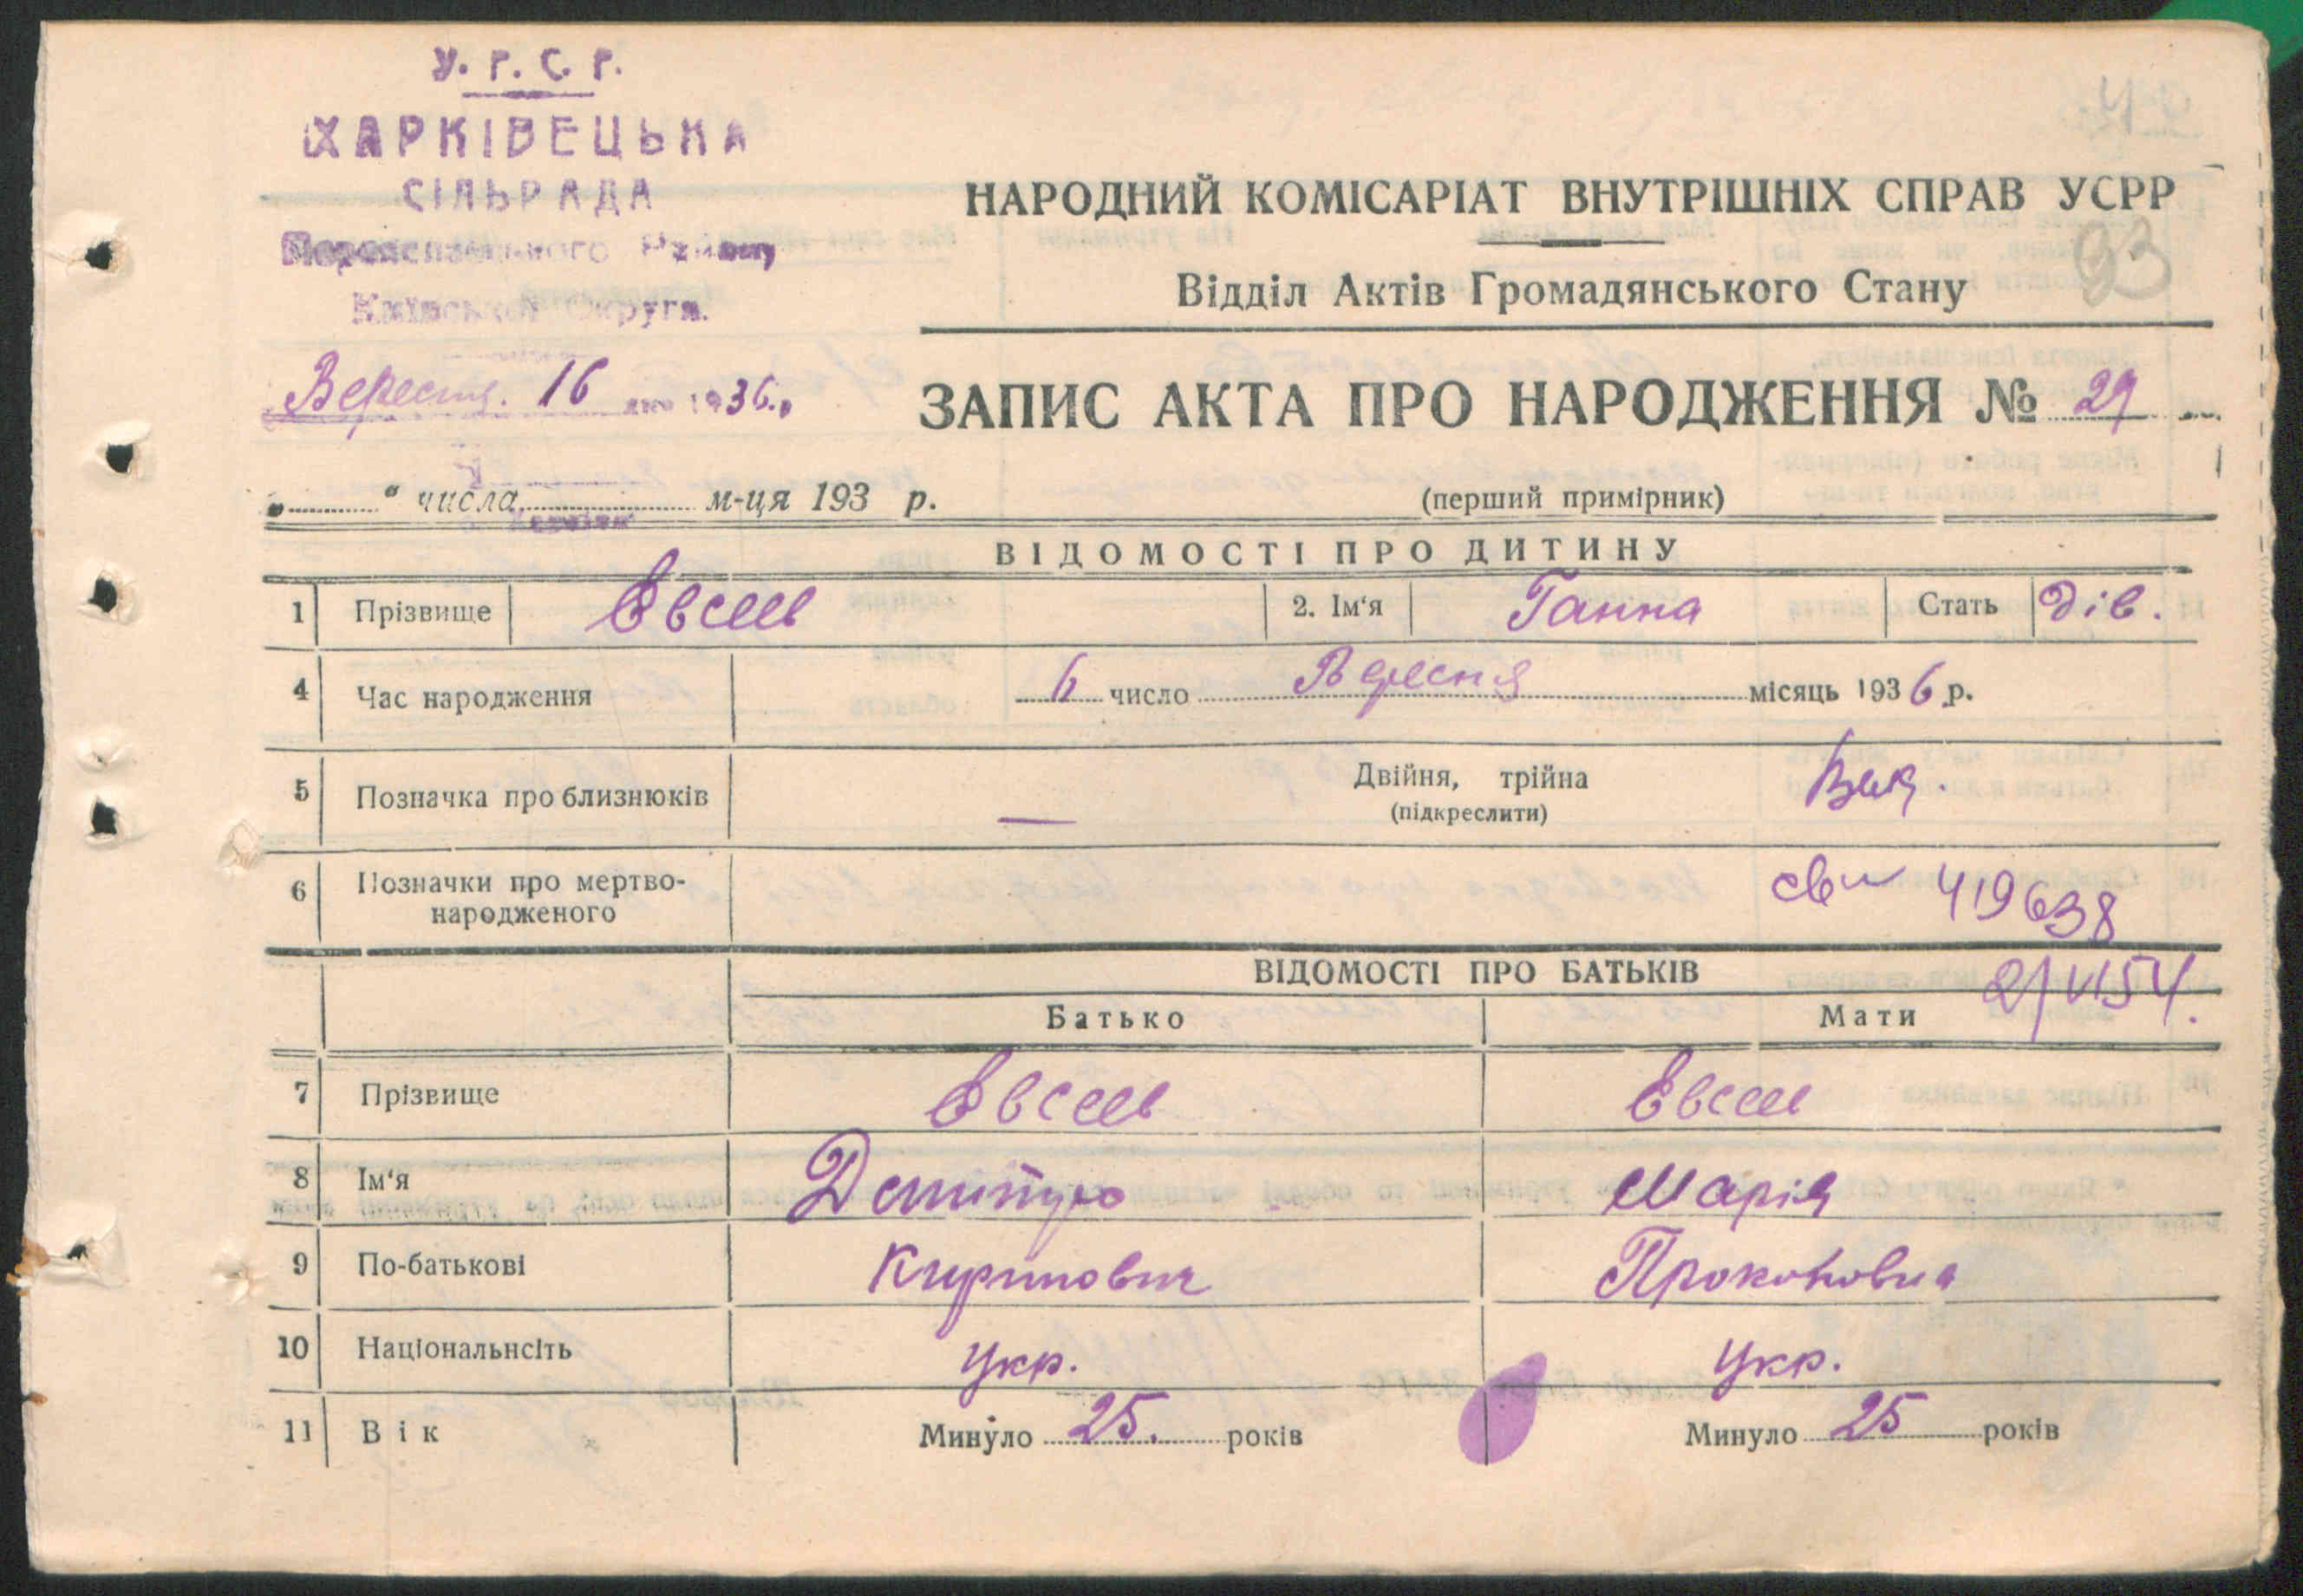 У. Р. С. Р.
ХАРКІВЕЦЬКА
СІЛЬРАДА
Переяславського Району
Київської Округи.
Вересня. 16 дня 1936 р.
„ “ числа м-ця 193 р.
НАРОДНИЙ КОМІСАРІАТ ВНУТРІШНІХ СПРАВ УСРР
93
Відділ Актів Громадянського Стану
ЗАПИС АКТА ПРО НАРОДЖЕННЯ № 29
(перший примірник)
ВІДОМОСТІ ПРО ДИТИНУ
1 Прізвище Євсеев 2. Ім‘я Ганна Стать дів.
4 Час народження 6 число Вересня місяць 1936 р.
5 Позначка про близнюків — Двійня, трійна
(підкреслити)
6 Позначки про мертво-
народженого
419638
ВІДОМОСТІ ПРО БАТЬКІВ
21/VI 54.
Батько Мати
7 Прізвище Євсеев Євсеев
8 Ім‘я Дмитро Марія
9 По-батькові Кирилович Прокоповна
10 Національнсіть укр. укр.
11 Вік Минуло 25. років Минуло 25 років